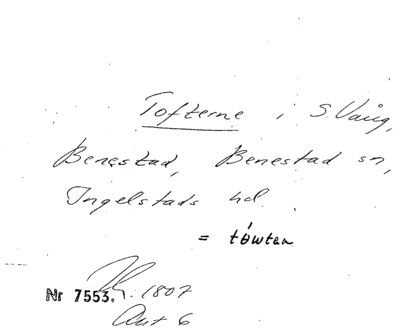 Tofterne i S. Vång,
Benestad, Benestad sn,
Ingelstads hd.
= tówten
Nr 7553. 1807
Akt 6